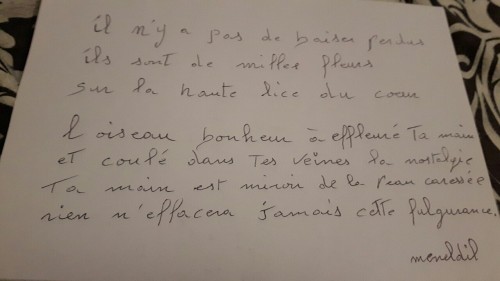 il n'y a pas de baiser perdus
ils sont de milles fleurs
sur la haute lice du coeur
l'oiseau bonheur à effleuré ta main
et coulé dans tes veines la nostalgie
ta main est miroir de la peau caressée
rien n'effacera jamais cette fulgurance.
meneldil